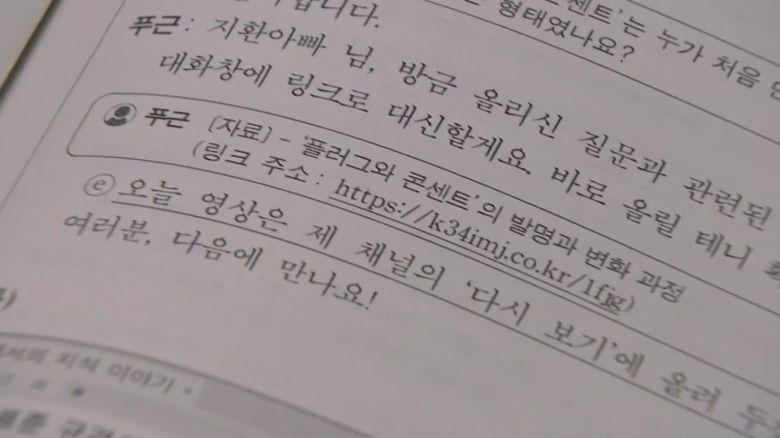 센트'는 누가 처음
습니다. 형태였나요?
푸근: 지환아빠 님, 방금 올리신 질문과 관련된
대화창에 링크로 대신할게요. 바로 올릴 테니
푸근 [자료] - '플러그와 콘센트'의 발명과 변화 과정
(링크 주소 : https://k34imj.co.kr/1fjg)
ⓔ 오늘 영상은 제 채널의 '다시 보기'에 올려
여러분, 다음에 만나요!
지식 이야기